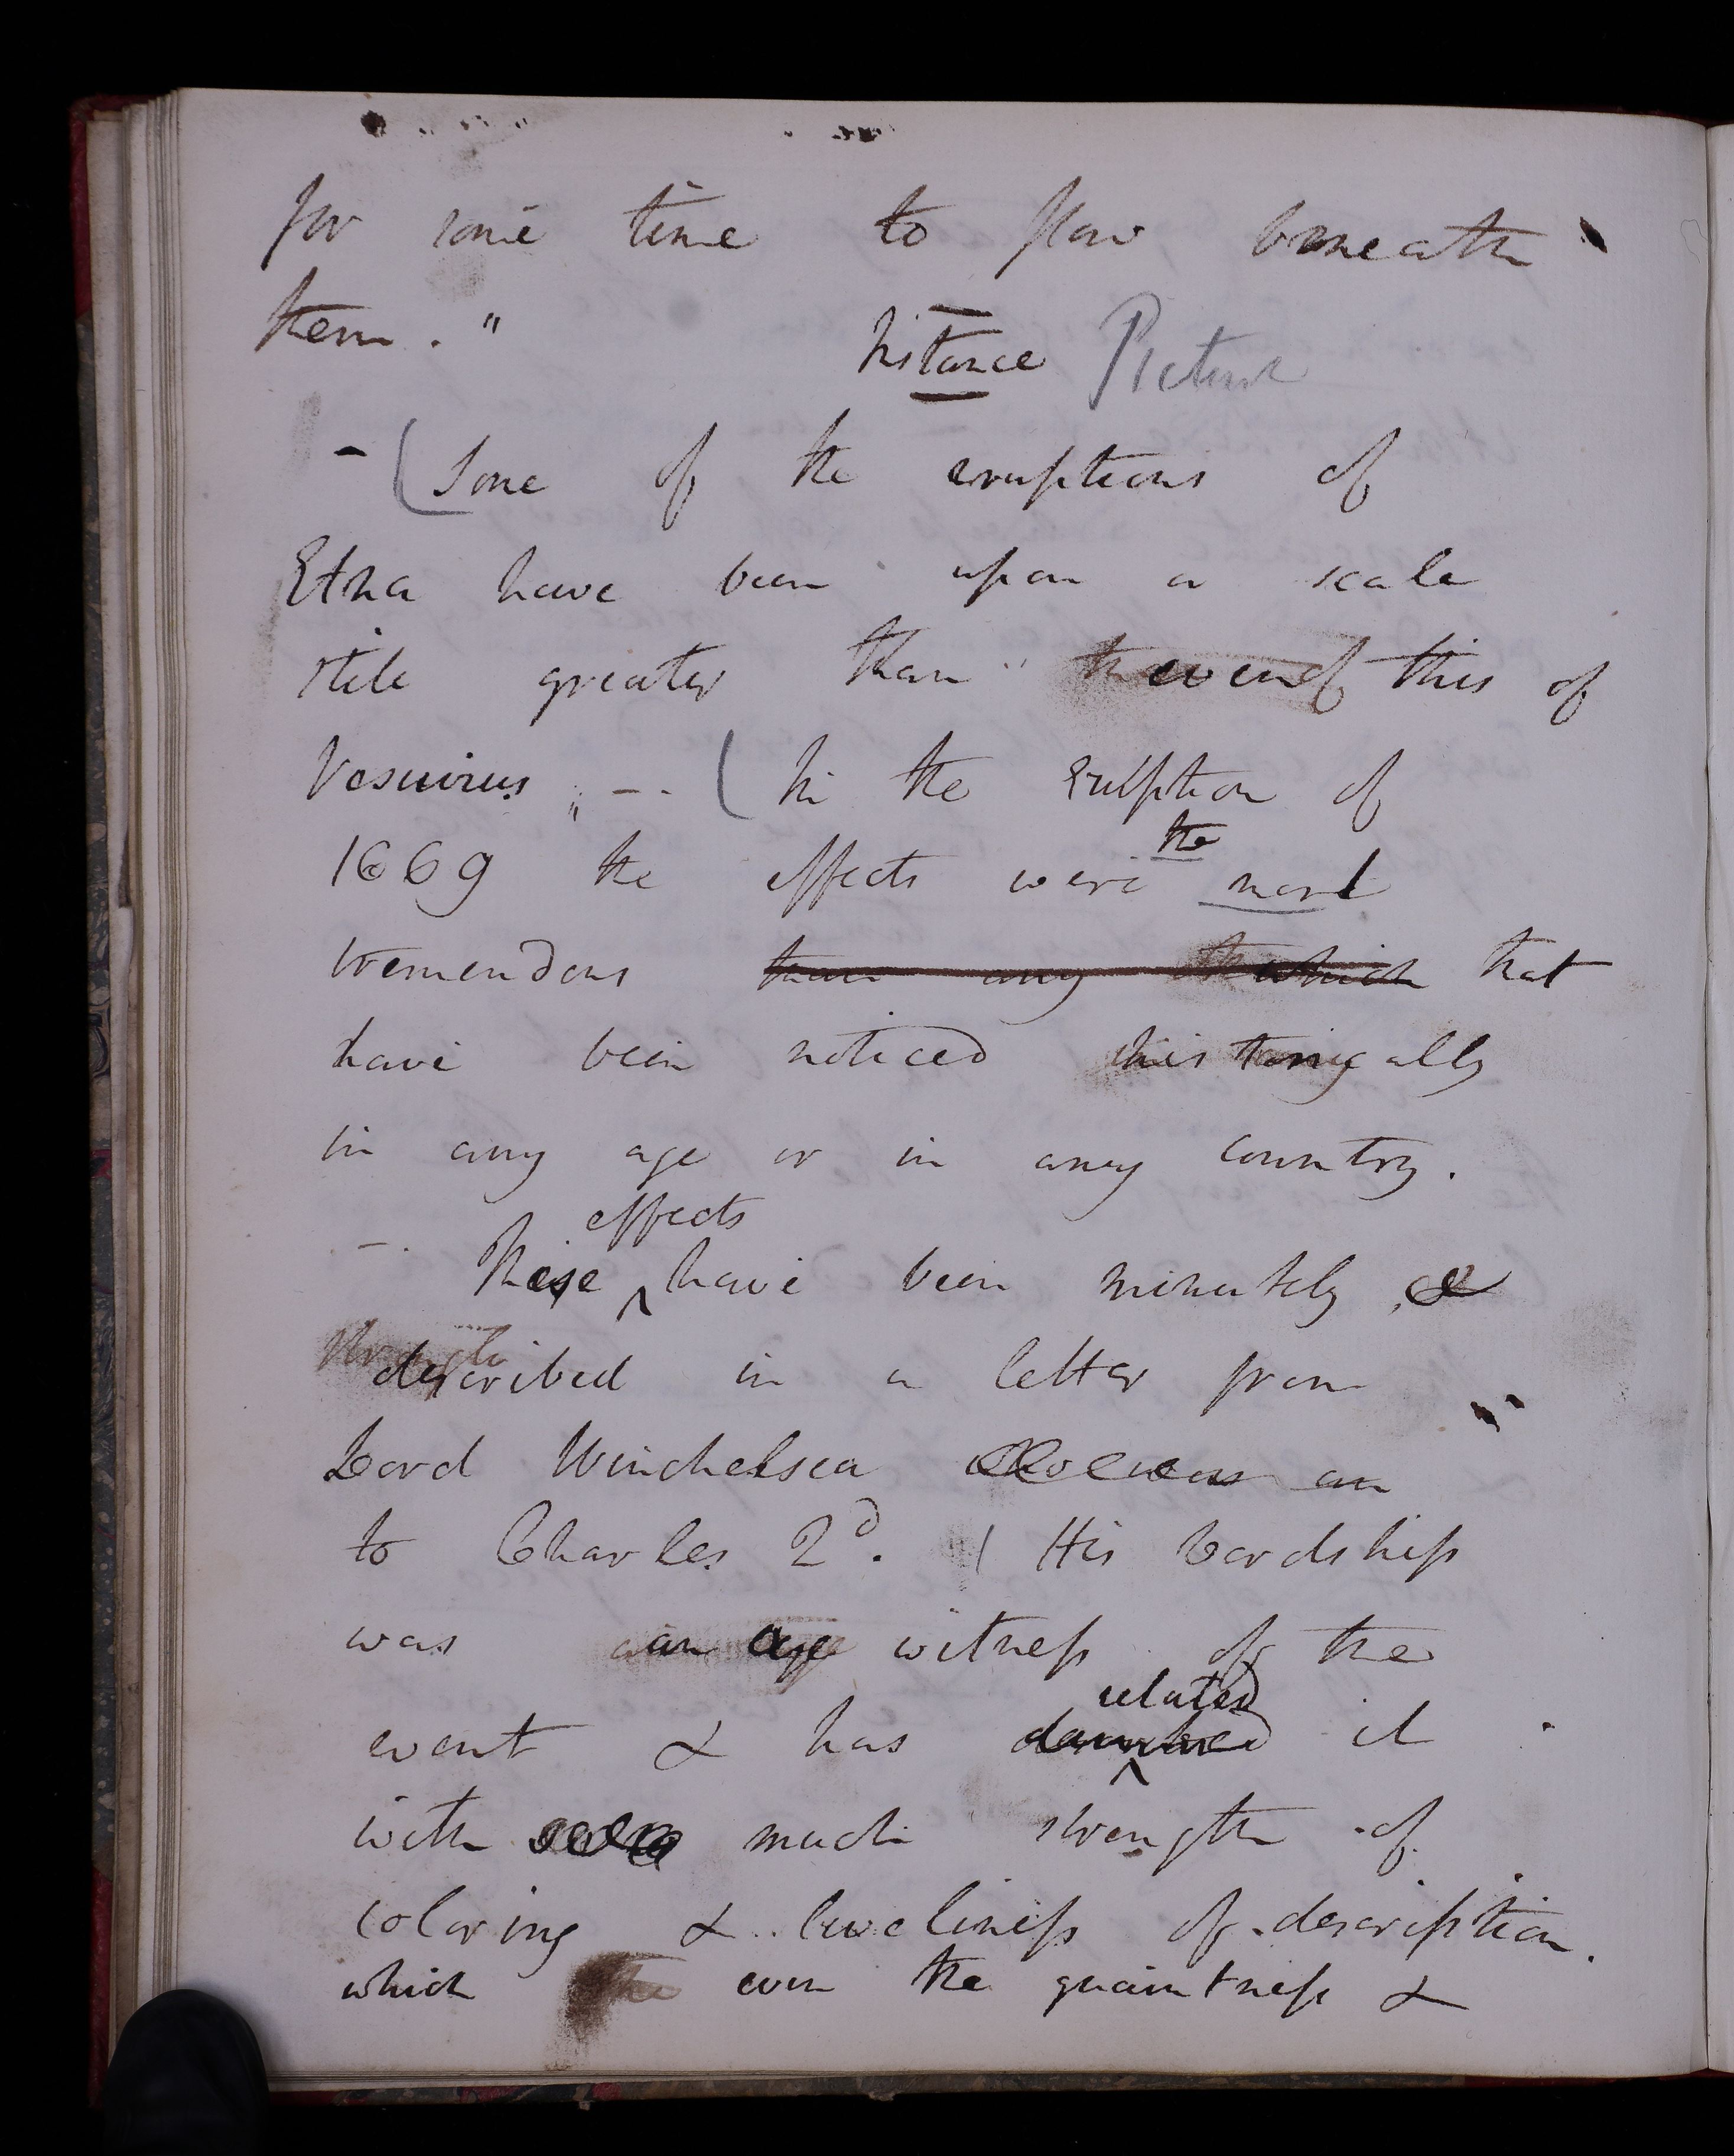 for some time to flow beneath
them."
Instance Picture
- (Some of the eruptions of
Etna have been upon a scale
still greater than even this of
Vesuvius, -- (In the Eruption of
the
1669 the effects were most
tremendous than any which that
have been noticed historically
in any age or in any country.
effects
- These ^ have been minutely &
described in a letter from
Lord Winchelsea an
to Charles 2d. / His Lordship
was an eye witness of the
related
event & has described it
with much strength of
coloring & liveliness of description.
which even the quaintness &